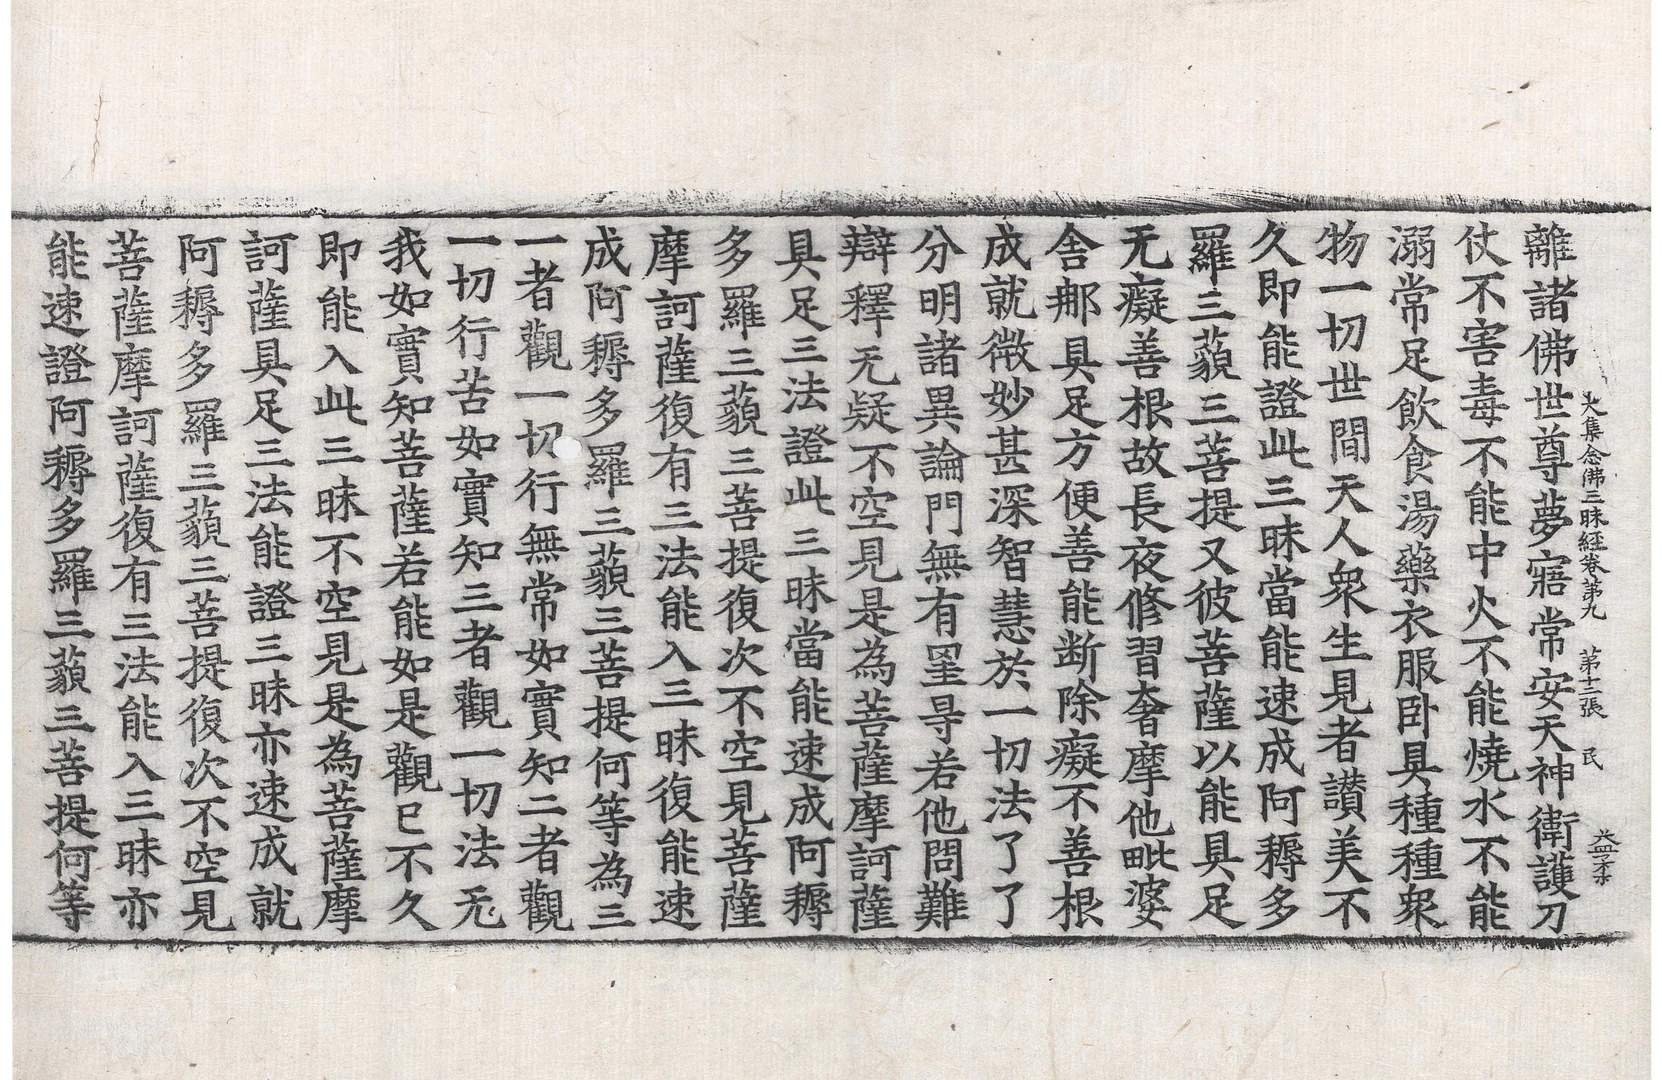 大集念佛三昧經卷第九 第十三張 民
離諸佛世尊夢寤常安天神衛護刀
仗不害毒不能中火不能燒水不能
溺常足飲食湯藥衣服卧具種種衆
物一切世間天人衆生見者讃美不
久即能證此三昧當能速成阿耨多
羅三藐三菩提又彼菩薩以能具足
无癡善根故長夜修習奢摩他毗婆
舍那具足方便善能断除癡不善根
成就微妙甚深智慧於一切法了了
分明諸異論門無有罣㝵若他問難
辯釋无疑不空見是為菩薩摩訶薩
具足三法證此三昧當能速成阿耨
多羅三藐三菩提復次不空見菩薩
摩訶薩復有三法能入三昧復能速
成阿耨多羅三藐三菩提何等為三
一者觀一切行無常如實知二者觀
一切行苦如實知三者觀一切法无
我如實知菩薩若能如是觀已不久
即能入此三昧不空見是為菩薩摩
訶薩具足三法能證三昧亦速成就
阿耨多羅三藐三菩提復次不空見
菩薩摩訶薩復有三法能入三昧亦
能速證阿耨多羅三藐三菩提何等